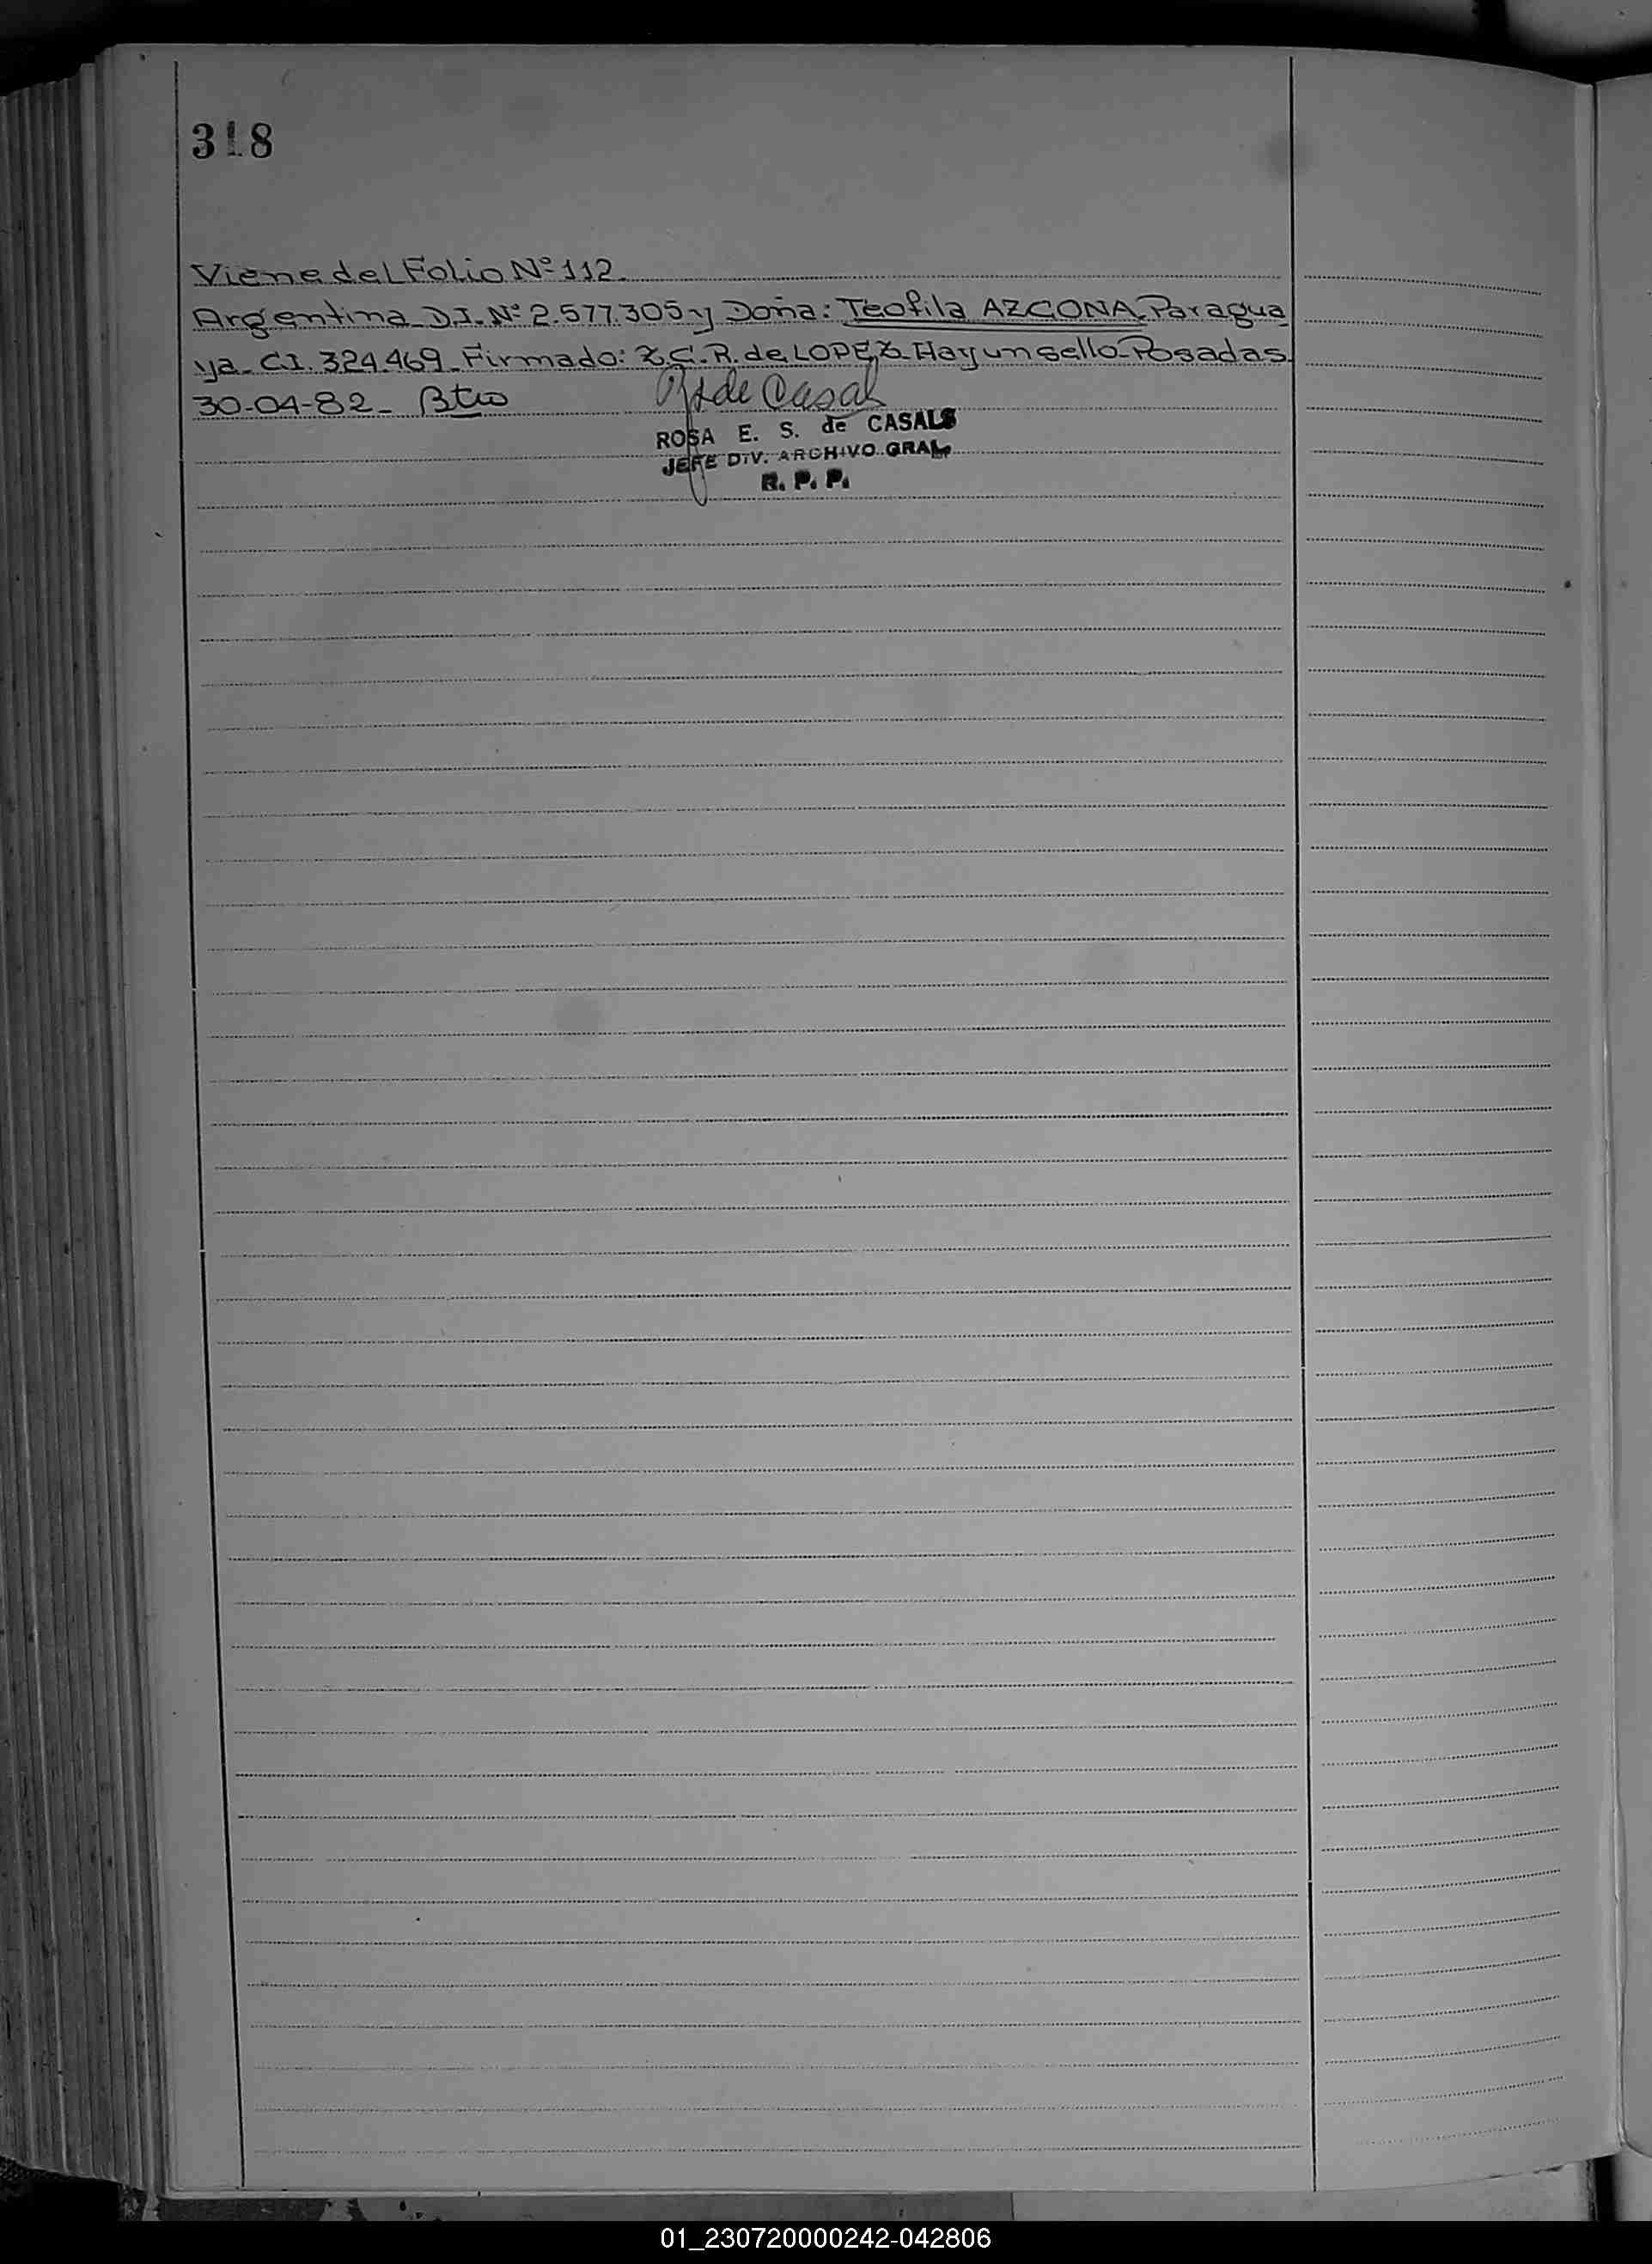 318
Viene del Folio Nº 112.
Argentina D.I. Nº 2.577.305 y Doña: Teofila AZCONA. Paragua
ya. C.I. 324.469. Firmado: Z.C.R. de LOPEZ. Hay un sello. Posadas.
30-04-82-
de Casals
ROSA E. S. de CASALS
JEFE DIV. ARCHIVO GRAL.
R. P. P.
01_230720000242-042806